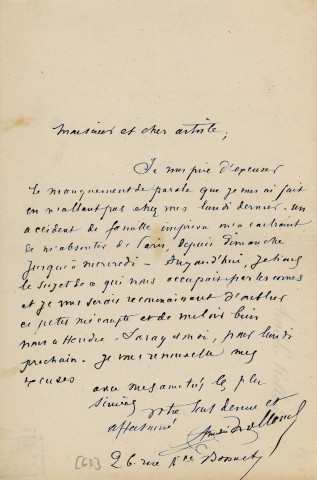 Monsieur et cher artiste,
Je vous prie d'excuser
le manquement de parole que je vous ai fait
en n'allant pas chez vous lundi dernier. Un
accident de famille imprévu m'a contraint
de m'absenter de Paris, depuis Dimanche
jusqu'à mercredi - Aujourd'hui, je tiens
le sujet de ce qui nous occupait par les cornes
et je vous serais reconnaissant d'oublier
ce petit mécompte et de vouloir bien
nous attendre, et moi, pour lundi
prochain. Je vous renouvelle mes
excuses
avec mes amitiés les plus
sincères
votre tout dévoué et
affectionné
26 rue